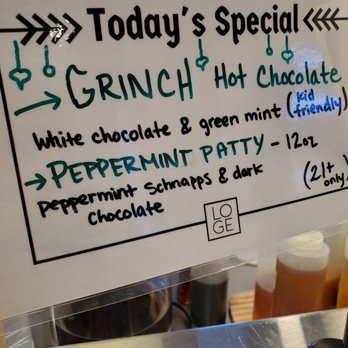 Today's Special
GRINCH Hot Chocolate
White chocolate & green mint (kid
friendly)
PEPPERMINT PATTY - 12oz
peppermint Schnapps & dark
chocolate
(21+
only)
LO
GE